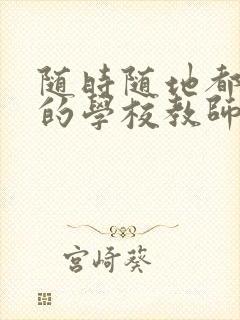 随時随地都
的學校教師
宮崎葵